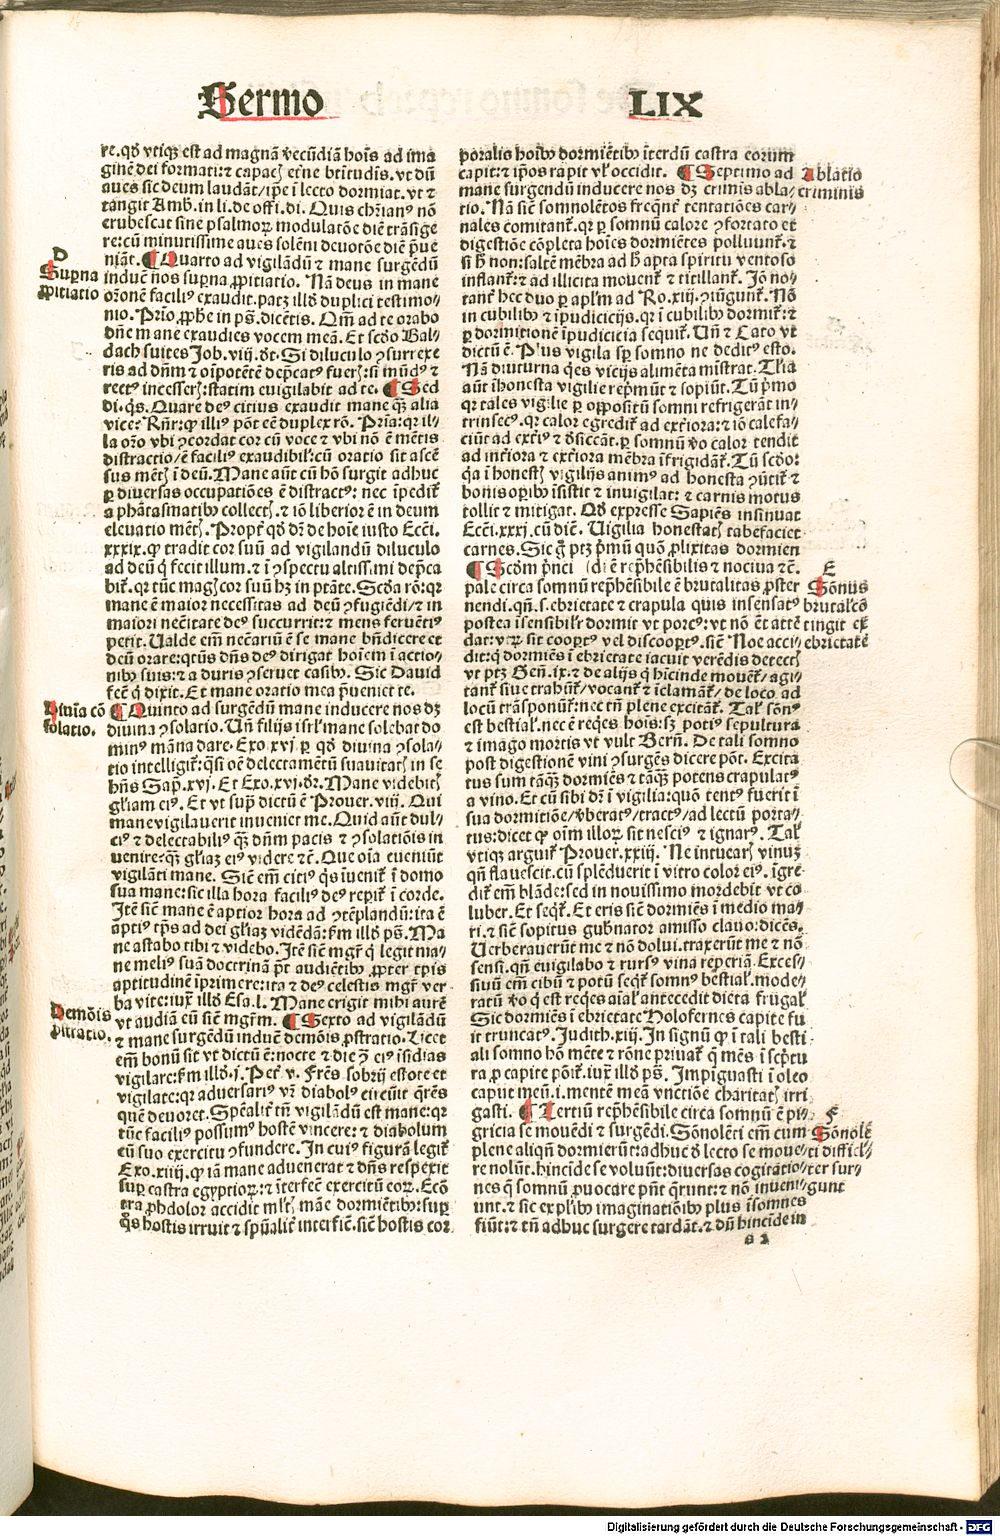 Sermo LIX
re.qđ vtiqƺ est ad magnā vecūdiā hoīs ad ima
gine dei formati:⁊ capacę eterne btītudis.vt dū
aues sic deum laudāt/ip̄e ī lecto dormiat.vt ⁊
tangit Amb.in li.de offi.di.Quis chr̄ianꝰ nō
erubescat sine psalmoꝝ modulatōe diē trāsige
re:cū minutissime aues solēni deuotōe diē p̄ue
niāt. ¶ Quarto ad vigilādū ⁊ mane surgēdū
inducūt nos sup̄na ꝓpitiatio. Nā deus in mane
orōnem faciliꝰ exaudit.patꝫ illđ duplici testimo-
nio.Prīo ꝓph̄e in pꝭ.dicētis. Qm̄ ad te orabo
dn̄e mane exaudies vocem meā.Et scđo Bal-
dach suites Job.viij.đt.Si diluculo ꝯsurrexe
ris ad dn̄m ⁊ oīpotētē dep̄catꝰ fuerꝭ:si mūdꝰ ⁊
rectꝰ incesserꝭ:statim euigilabit ad te. ¶ Sed
di.q̄s.Quare deꝰ citius exaudit mane qꝫ alia
vice? Rn̄r:ꝙ illiꝰ pōt eē duplex rō.Pria:qꝛ il-
la orō vbi ꝯcordat cor cū voce ⁊ vbi nō ē mētis
distractio/ē faciliꝰ exaudibilꝭ:cū oratio sit ascē
sus mētꝭ ī deū.Mane aūt cū hō surgit adhuc
ꝑ diuersas occupatiōes ē distractꝰ: nec īpedit̄
a phātasmatibꝰ collectꝭ.⁊ iō liberior ē in deum
eleuatio mētꝭ.Propt̄ qđ dz de hoīe iusto Ecci.
xxxix.ꝙ tradit cor suū ad vigilandū diluculo
ad deū q̄ fecit illum.⁊ ī ꝯspectu altissimi dep̄ca
bit̄.qꝛ tūc magꝭ cor suū hꝫ in ptāte.Scđa rō:qꝛ
mane ē maior necessitas ad deū ꝯfugiēdi/⁊ in
maiori nec̄itate deꝰ succurrit:⁊ mens feruētiꝰ
petit.Ualde em̄ nec̄ariū ē se mane bn̄dicere et
deū orare:qtūs dn̄s deꝰ dirigat hoīem ī actio-
nibꝰ suis:⁊ a duris ꝯseruet casibꝰ. Sic Dauid
fec̄ q̄ dixit.Et mane oratio mea p̄ueniet te.
¶ Quinto ad surgēdū mane inducere nos dꝫ
diuina ꝯsolatio. Uñ filijs isrl̄ mane solebat do
minꝰ māna dare. Exo.xvj.ꝑ qđ diuina ꝯsola-
tio intelligit̄:q̄si oē delectamētū suauitatꝭ in se
hn̄s Sap̄.xvj.Et Exo.xvj.đr.Mane videbitꝭ
gl̄iam eiꝰ.Et vt sup̄ dictū ē Prouer.viij. Qui
mane vigilauerit inueniet me.Quid aūt dul-
ciꝰ ⁊ delectabiliꝰ qꝫ dn̄m pacis ⁊ ꝯsolatiōis in
uenire:qꝫ gl̄iaꝫ eiꝰ videre ⁊c̄.Que oīa eueniūt
vigilāti mane. Sic̄ em̄ citiꝰ q̄s īuenit̄ ī domo
sua mane:sic illa hora faciliꝰ deꝰ reꝑit̄ ī corde.
Itē sic̄ mane ē aptior hora ad ꝯtēplandū:ita ē
aptiꝰ tp̄s ad dei gl̄iaꝫ vidēdā:ẜm illđ pꝭ. Ma
ne astabo tibi ⁊ videbo.Itē sic̄ mgr̄ q̄ legit ma-
ne meliꝰ suā doctrinā p̄t audiētibꝰ ꝓpter tp̄is
aptitudinē īprimere:ita ⁊ deꝰ celestis mgr̄ ver-
ba vite:iuꝯ illđ Esa.l.Mane erigit mihi aurē
vt audiā eū sic̄ mgr̄m. ¶ Sexto ad vigilādū
⁊ mane surgēdū inducūt demōis ꝓstratio.Licet
em̄ bonū sit vt dictū ē:nocte ⁊ die ꝯ eiꝰ īsidias
vigilare:ẜm illđ.j.Pet̄ v. Fr̄es sobrij estote et
vigilate:qꝛ aduersariꝰ vr̄ diabolꝰ circuit q̄rēs
quē deuoret.Spēalit̄ tn̄ vigilādū est mane:qꝛ
tūc faciliꝰ possumꝰ hostē vincere:⁊ diabolum
cū suo exercitu ꝯfundere.In cuiꝰ figurā legit̄
Exo.xiiij.ꝙ iā mane aduenerat ⁊ dn̄s respexit
sup̄ castra egyptioꝝ:⁊ īterfec̄ exercitū eoꝝ.Ecō
tra ꝓhdolor accidit ml̄tꝭ mane dormiētibꝰ:sup̄
q̄s hostis irruit ⁊ sp̄ualit̄ interficit.sic̄ hostis cor
D
Sup̄na
ꝓpitiatio
Diuīa cō
solatio.
Demōis
ꝓstratio.
poralis hoībꝰ dormiētibꝰ īterdū castra eorum
capit:⁊ ip̄os rapit vl̄ occidit. ¶ Septimo ad
mane surgendū inducere nos dꝫ crimīs abla-
tio. Nā sic̄ somnolētos freq̄nt̄ tentatiōes car-
nales comitant̄.qꝛ ꝑ somnū calore ꝯfortato et
digestiōe cōpleta hoīes dormiētes polluunt̄.⁊
si hꝭ non:saltē mēbra ad hꝭ apta spiritu ventoso
inflant̄:⁊ ad illicita mouent̄ ⁊ titillant̄. Iō no-
tant̄ hec duo ꝑ apl̄m ad Ro.xiij.ꝯiūgunt̄. Nō
in cubilibꝰ ⁊ īpudicicijs.qꝛ ī cubilibꝰ dormit̄:⁊
ꝑ dormitionē īpudicicia sequit̄. Uñ ⁊ Cato vt
dictū ē. Plus vigila sp̄ somno ne deditꝰ esto.
Nā diuturna q̄es vicijs alimēta mīstrat. Tl̄ia
aūt īhonesta vigilie rep̄mūt ⁊ sopiūt. Tū p̄mo
qꝛ tales vigilie ꝑ oppositū somni refrigerāt in-
trinsecꝰ.qꝛ calor egredit̄ ad ext̄iora:⁊ iō calefa-
ciūt ad ext̄iꝰ ⁊ đsiccāt.ꝑ somnū v̄o calor tendit
ad int̄iora ⁊ ext̄iora mēbra īfrigidāt̄. Tū scđo:
q̄a ī honestꝭ vigilijs animꝰ ad honesta ꝯūtit̄ ⁊
bonis oꝑibꝰ īsistit ⁊ inuigilat:⁊ carnis motus
tollit ⁊ mitigat. Qđ expresse Sapiēs insinuat
Ecci.xxxj.cū dic̄. Uigilia honestatꝭ tabefaciet
carnes.Sic g̊ ptꝫ p̄mū quō ꝓlixitas dormien
¶ Scđm p̄nci (di ē rep̄hēsibilis ⁊ nociua ⁊c̄.
pale circa somnū rep̄hēsibile ē brutalitas ꝓster
nendi.qn̄.s.ebrietate ⁊ crapula quis insensatꝰ
postea īsensibilꝭr dormit vt porcꝰ:vt nō ēt attē
dat:vtꝝ sit coopertꝰ vel discooptꝰ.sic̄ Noe acci-
dit:q̄ dormiēs ī ebrietate iacuit verēdis detectꝭ
vt ptꝫ Gen̄.ix.⁊ de alijs q̄ hīcinde mouent̄/agi-
tant̄ siue trahunt̄/vocant̄ ⁊ īclamant̄/de loco ad
locū trāsponunt̄:nec tn̄ plene excitant̄. Talꝭ sōnꝰ
est bestialꝭ.nec ē reqes hoīs:sꝫ potiꝰ sepultura
⁊ imago mortis vt vult Bern̄. De tali somno
post digestionē vini ꝯsurgēs dicere pōt. Excita
tus sum tāqꝫ dormiēs ⁊ tāqꝫ potens crapulatꝰ
a vino.Et cū sibi đr ī vigilia:quō tentꝰ fuerit ī
sua dormitiōe/v̄beratꝰ/tractꝰ/ad lectū porta-
tus:dicet ꝙ oīm illoꝝ sit nesciꝰ ⁊ ignarꝰ. Talꝭ
vtiqꝫ arguit̄ Prouer.xxiij. Ne intuearꝭ vinuꝫ
qn̄ flauescit.cū splēduerit ī vitro color eiꝰ.īgre
dit̄ em̄ blāde:sed in nouissimo mordebit vt co
luber.Et seqt̄.Et eris sic̄ dormiēs ī medio ma-
ri.⁊ sic̄ sopitus gub̄nator amisso clauo:dicēs.
Uerberauerūt me ⁊ nō dolui.traxerūt me ⁊ nō
sensi.qn̄ euigilabo ⁊ rursꝰ vina reperiā.Exces-
siuū em̄ cibū ⁊ potū seqt̄ somnꝰ bestialꝭ.mode-
ratū v̄o q̄ est reqes aīalꝭ antecedit dieta frugalꝭ
Sic dormiēs ī ebrietate Holofernes capite fu
it truncatꝰ.Judith.xiij.In signū ꝙ ī tali besti-
ali somno hō mēte ⁊ rōne priuat̄ q̄ mēs ī scp̄tu
ra ꝑ capite pōit̄.iuꝯ illđ pꝭ. Impiguasti ī oleo
caput meū.i.mentē meā vnctiōe charitatꝭ irri
gasti. ¶ Tertiū rep̄hēsibile circa somnū ē pi-
gricia se mouēdi ⁊ surgēdi.Sōnolēti em̄ cum
plene aliqn̄ dormierūt:adhuc đ lecto se moue-
re nolūt.hīcinde se voluūt:diuersas cogitatio-
nes q̄ somnū ꝓuocare pn̄t q̄runt:⁊ nō inueni-
unt.⁊ sic explꝭibꝰ imaginatiōibꝰ plus īsomnes
fiūt:⁊ tn̄ adhuc surgere tardāt.⁊ dū hīcinde in
Ablatio
criminis
E
Sōnus
brutalꝭ cō
tingit ex
ebrietatē
F
Sōnolē
ti difficl̄-
ter sur-
gunt
Digitalisierung gefördert durch die Deutsche Forschungsgemeinschaft - DFG